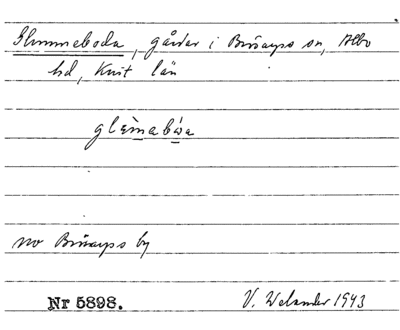 Glimmeboda, gårdar i Brösarps sn, Albo
hd, Krist län
glèmabòa
no Brösarps by
Nr 5898.
V. Welander 1943